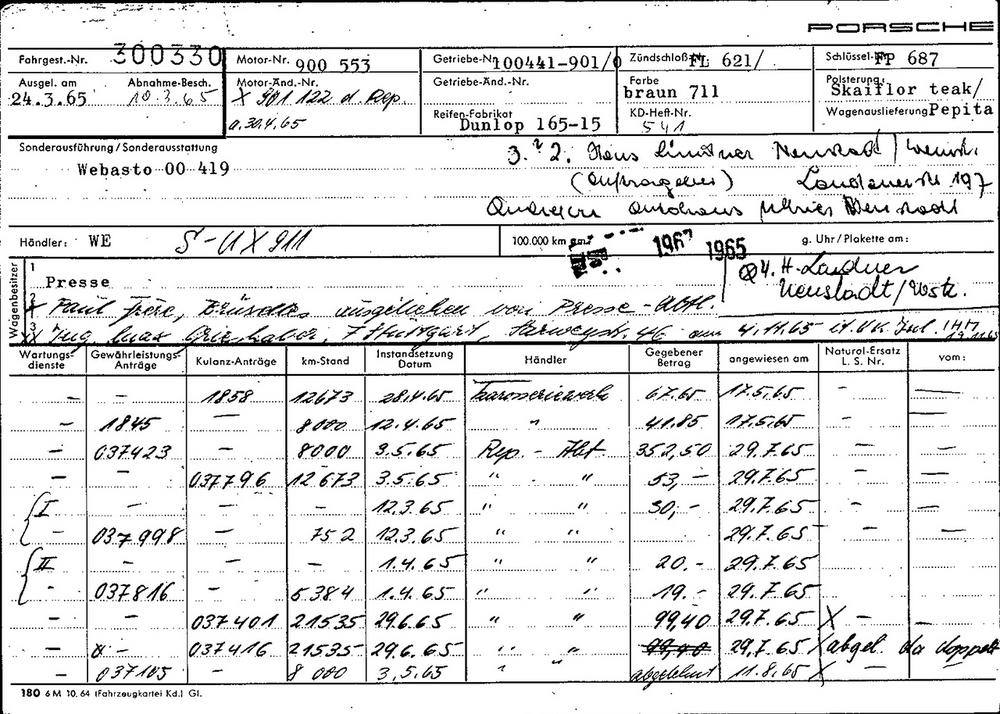 PORSCHE
Fahrgest.-Nr. 300330 Motor-Nr. 900 553 Getriebe-Nr. 100441-901/0 Zündschloß FL 621/ Schlüssel- FP 687
Ausgel. am Abnahme-Besch. Motor-Änd.-Nr. Getriebe-Änd.-Nr. Farbe Polsterung
24.3.65 10.3.65 X 901 122 d. Rep. braun 711 Skaiflor teak/
a. 30.4.65 Reifen-Fabrikat KD-Heft-Nr. Wagenauslieferung Pepita
Dunlop 165-15 541
Sonderausführung/Sonderausstattung 3. 2. Hans Lindner Neustadt/Weinstr.
Webasto 00 419 (Auftraggeber) Landauerstr. 197
Autohaus Neustadt
Händler: WE S-UX 911 100.000 km am: 1967 1965 g. Uhr/Plakette am:
Wagenbesitzer
1 Presse 4. H. Lindner
Neustadt/Wstr.
2 Paul Frère, Brüssel, ausgeliehen von Presse-Abtl.
3 Ing. Stuttgart, 46 am 4.11.65
Wartungsdienste Gewährleistungs-Anträge Kulanz-Anträge km-Stand Instandsetzung Datum Händler Gegebener Betrag angewiesen am Natural-Ersatz L. S. Nr. vom:
– – 1858 12673 28.4.65 Karosseriewerk 67.65 17.5.65 – —
– 1845 – 8000 12.4.65 " 41.85 17.5.65 – —
– 037423 – 8000 3.5.65 Rep. - Abt. 352,50 29.7.65 – —
– – 037796 12673 3.5.65 " " 53,- 29.7.65 – —
I – – – 12.3.65 " " 30,- 29.7.65 – —
– 037998 – 752 12.3.65 " " 29.7.65 – —
II – – – 1.4.65 " " 20.- 29.7.65
– 037816 – 5384 1.4.65 " " 19.- 29.7.65
037401 21535 29.6.65 " " 99,40 29.7.65 X – –
– – 037416 21535 29.6.65 " " 99,40 29.7.65 X abgel. da doppelt
037105 – 8000 3.5.65 " " abgelehnt 11.8.65 X –
180 6 M 10. 64 (Fahrzeugkartei Kd.) Gl.